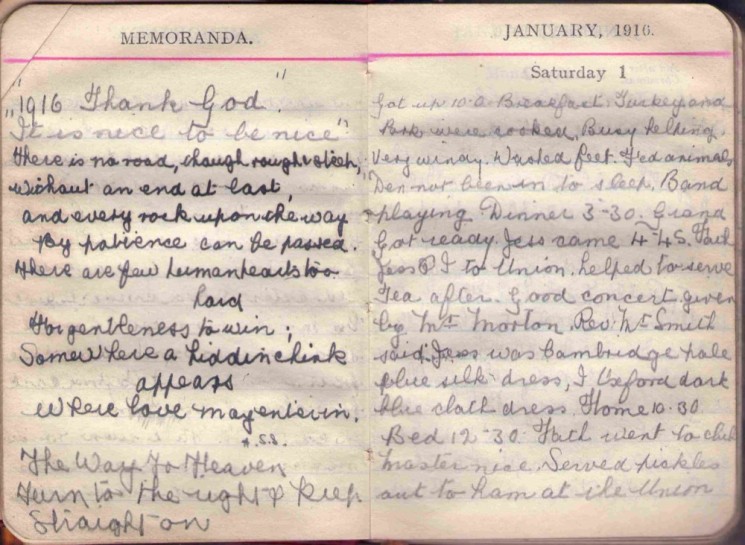 MEMORANDA.
"1916 Thank God.
It is nice to be nice"
There is no road, though rough & steep,
Without an end at last,
and every rock upon the way
By patience can be passed.
There are few human hearts too
hard
For gentleness to win;
Somewhere a hidden chink
appears
Where love may enter in.
The Way To Heaven
Turn to the right & keep
Straight on
JANUARY, 1916.
Saturday 1
Got up 10.0. Breakfast. Turkey and
Pork were cooked, Busy helping.
Very windy. Washed feet. Fed animals
Den not been in to sleep. Band
playing Dinner 3-30. Grand
Got ready. Jess came 4-45. Fath
Jess & I to Union. helped to serve
Tea after. Good concert given
by Mr Morton. Rev. Mr Smith
said. Jess was Cambridge pale
blue silk dress, I Oxford dark
blue cloth dress. Home 10.30.
Bed 12-30. Fath went to club
Master nice. Served pickles
out to ham at the Union